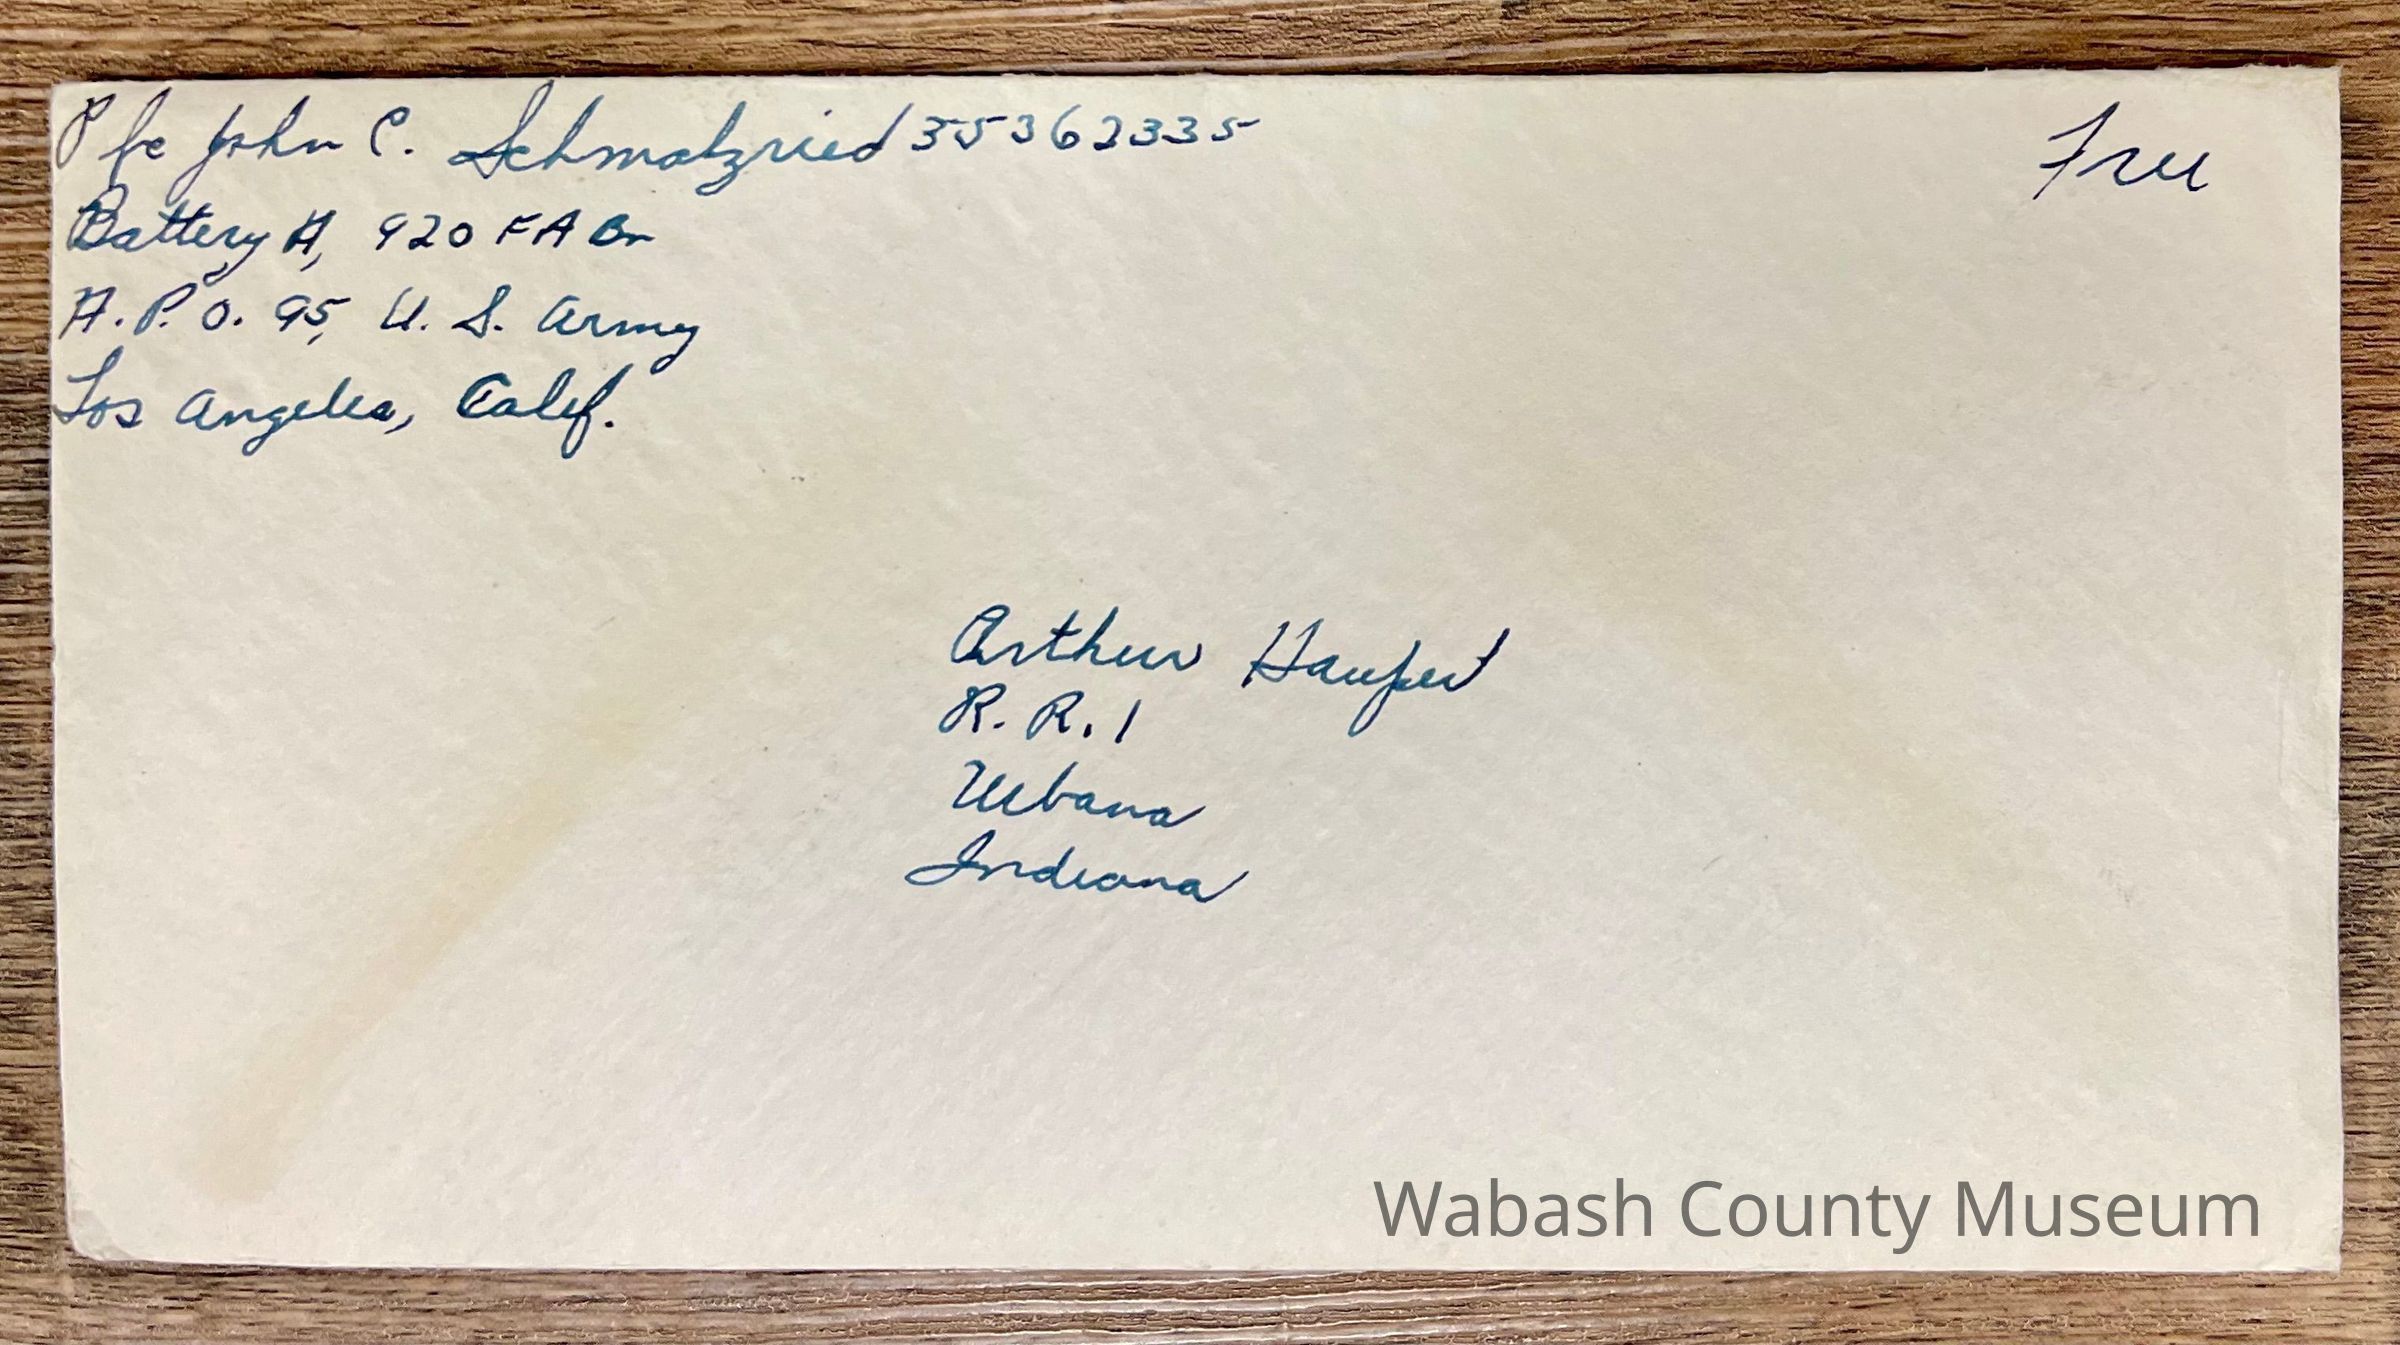 Pfc John C. Schmalzried 35362335
Free
Battery A, 920 FA Bn
A.P.O. 95, U.S. Army
Los Angeles, Calif.
Arthur Haupert
R.R.1
Urbana
Indiana
Wabash County Museum